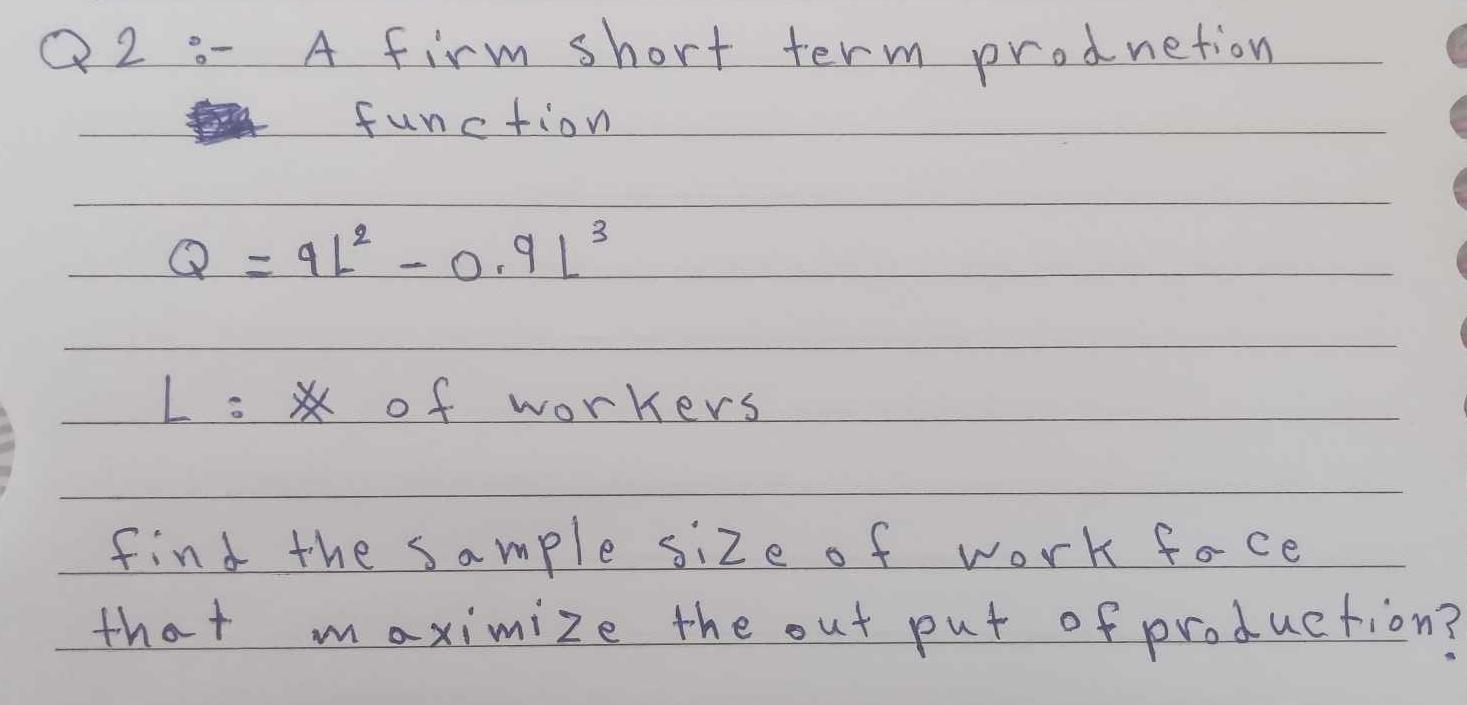 Q2 :- A firm short term prodnetion
function
Q = 9L² - 0.9L³
L : # of workers
find the sample size of work face
that maximize the out put of production?